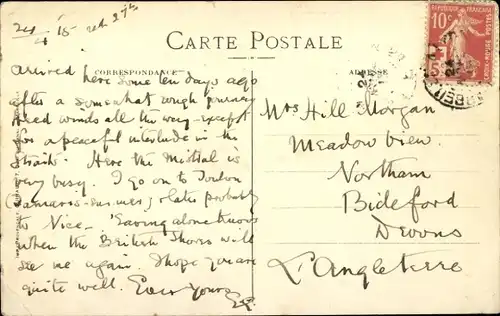 24/4 '15
CARTE POSTALE
CORRESPONDANCE
ADRESSE
RÉPUBLIQUE FRANÇAISE
10c
POSTES
Arrived here some ten days ago
after a somewhat rough journey
Head winds all the way - except
for a peaceful interlude in the
Straits. Here the Mistral is
very busy. I go on to Toulon
(Tamaris-sur-mer) & later probably
to Nice - Saving alone knows
when the British Shores will
see me again. I hope you are
quite well. Ever yours
Mrs Hill Morgan
Meadow View
Northam
Bideford
Devons
L'Angleterre